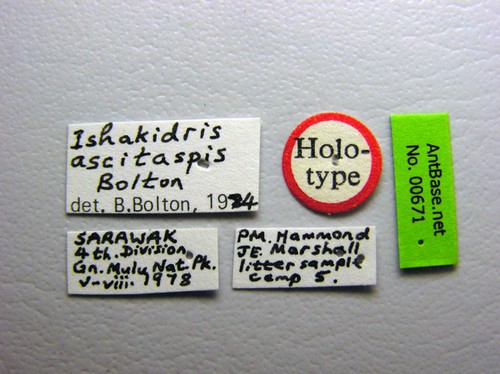 Ishakidris
ascitaspis
Bolton
det. B.Bolton, 1984
Holo-
type
AntBase.net
No. 00671
SARAWAK
4th. Division
Gn. Mulu Nat. Pk.
V-viii. 1978
P.M. Hammond
J.E. Marshall
litter sample
Camp 5.